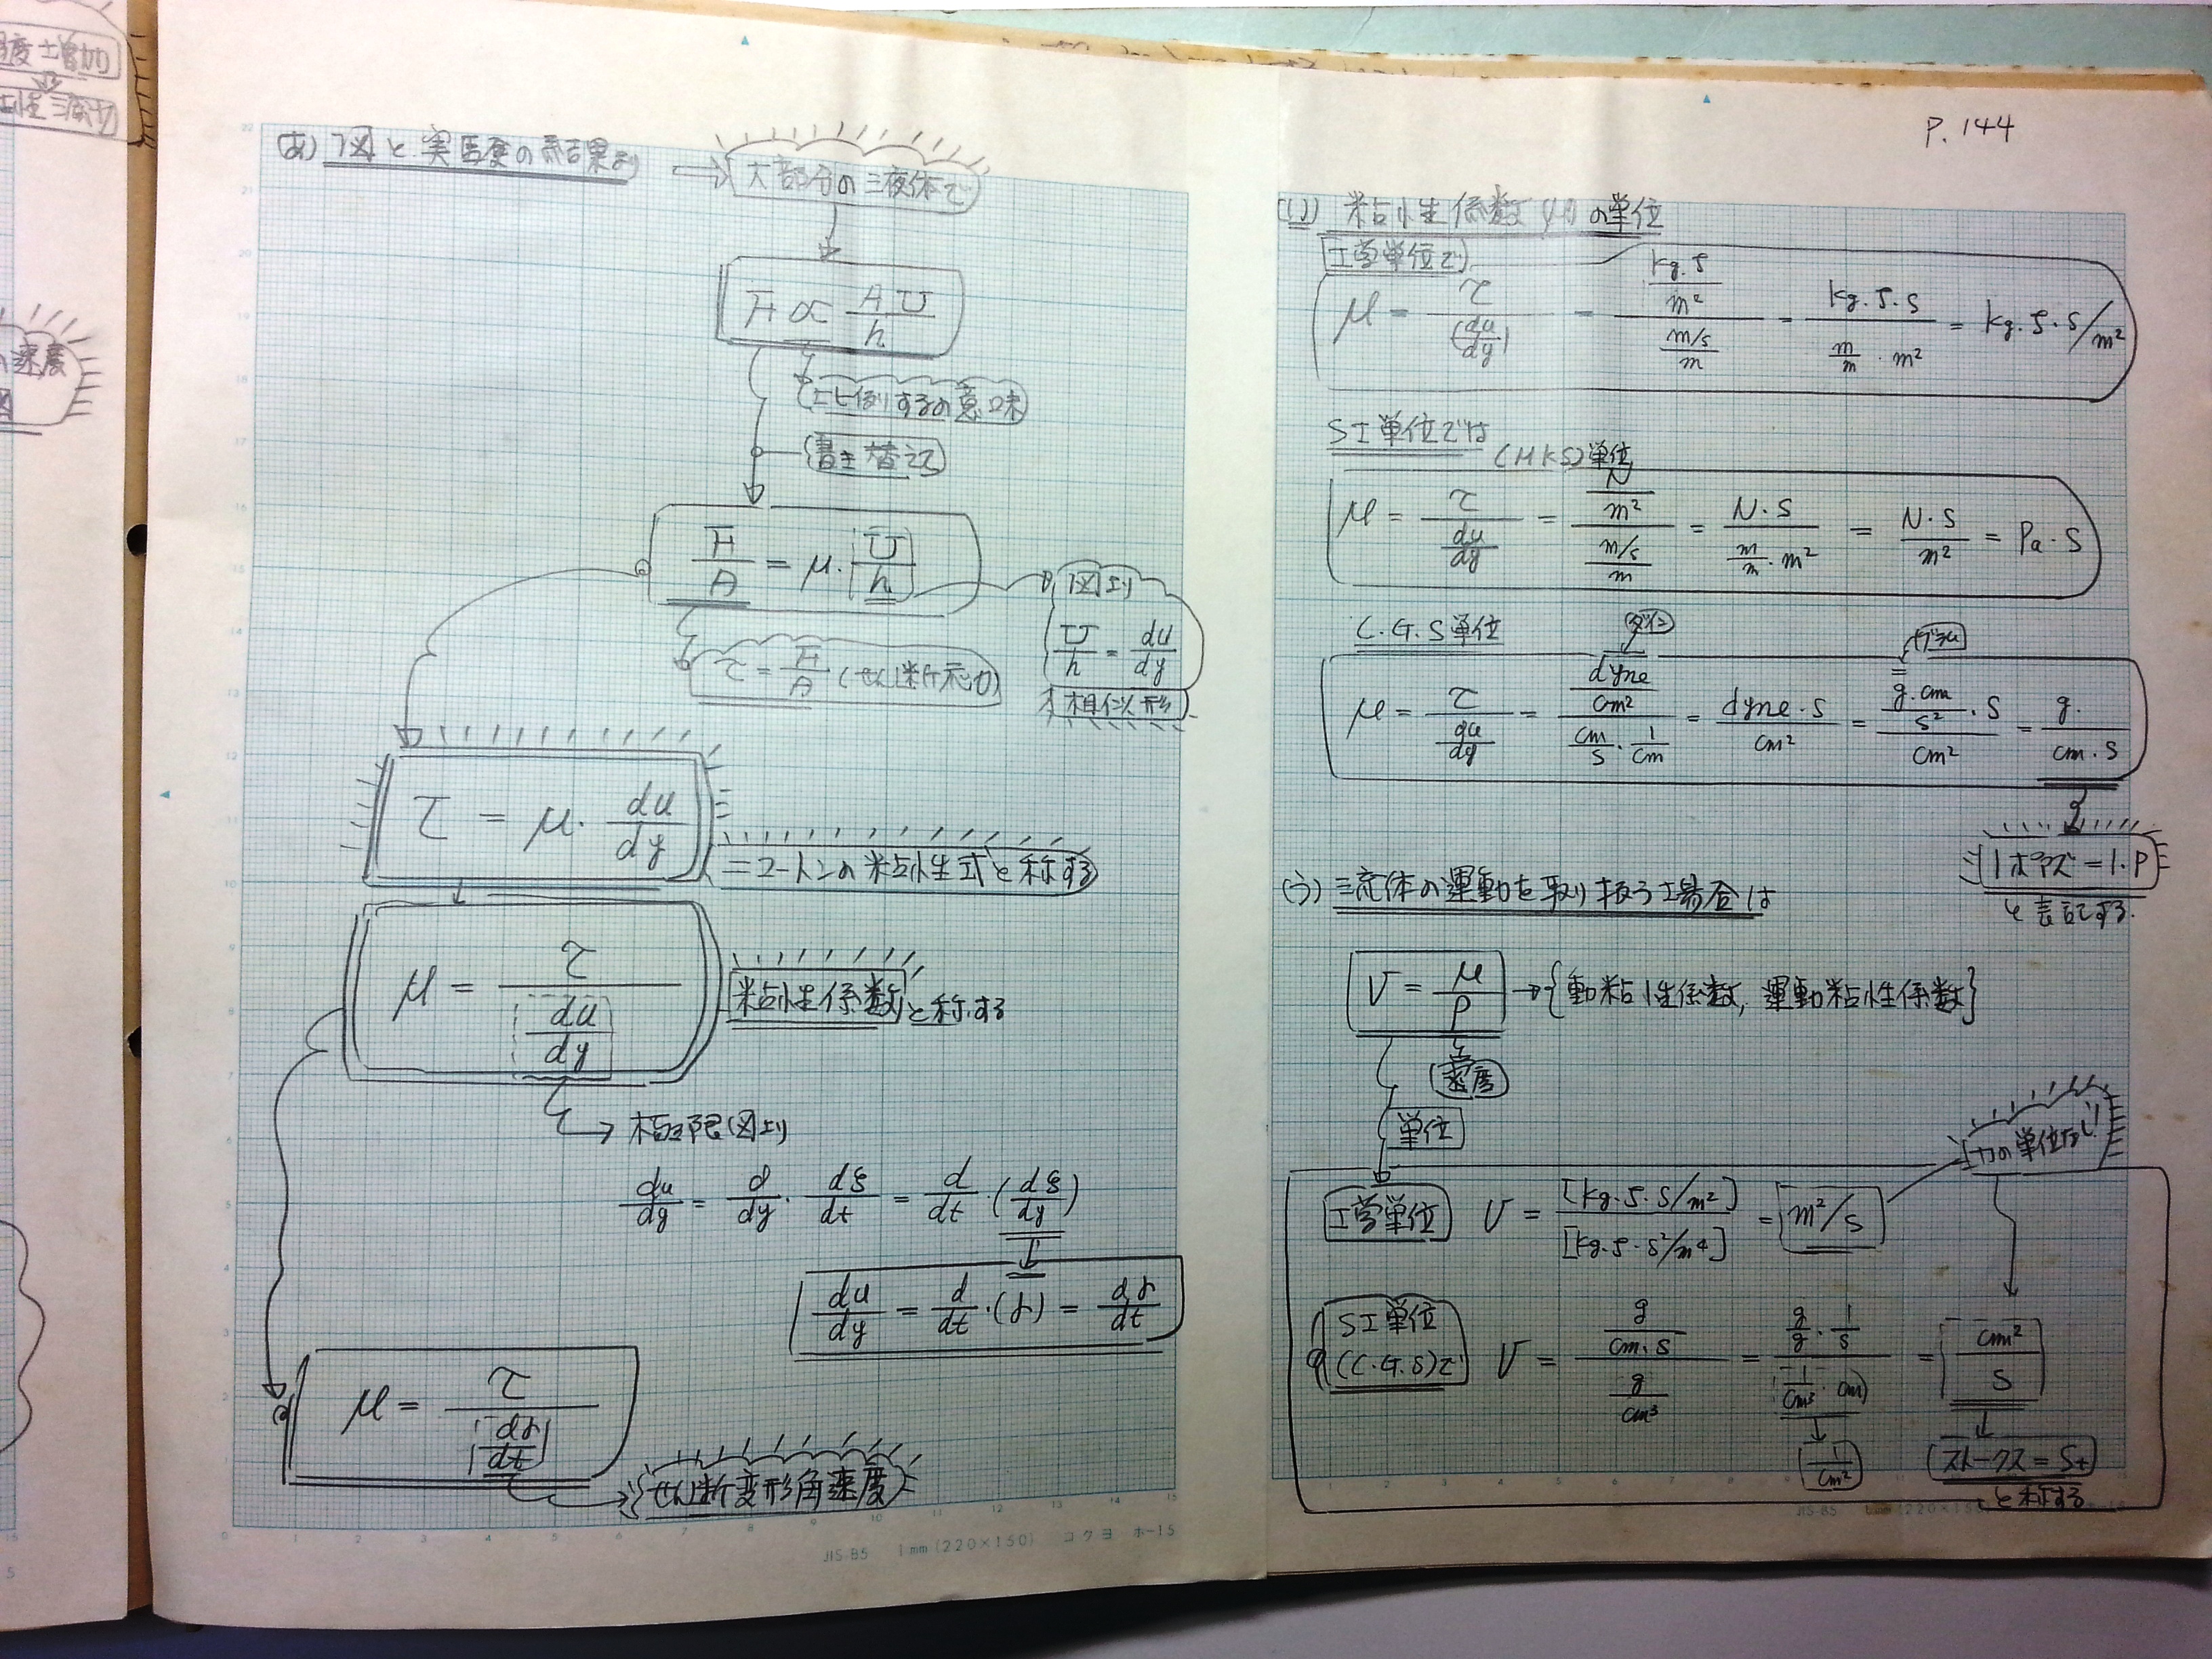 (あ) 図と実験の結果より → 大部分の液体で
F ∝ AU/h
比例するの意味
書き替えて
F/A = μ・U/h
図より
U/h = du/dy
相似形
τ = F/A (せん断応力)
τ = μ・du/dy
ニュートンの粘性式と称する
μ = τ/(du/dy)
粘性係数と称する
→ 極限図より
du/dy = d/dy・dξ/dt = d/dt・(dξ/dy)
du/dy = d/dt・(γ) = dγ/dt
μ = τ/(dγ/dt)
せん断変形角速度
JIS-B5 1mm(220×150) コクヨ ホ-15
P. 144
(い) 粘性係数(μ)の単位
工学単位で
μ = τ/(du/dy) = (kg.f/m²)/((m/s)/m) = kg.f・s/(m/m・m²) = kg.f・s/m²
SI単位では
(MKS)単位
μ = τ/(du/dy) = (N/m²)/((m/s)/m) = N・s/(m/m・m²) = N・s/m² = Pa・s
C.G.S単位
ダイン
グラム
μ = τ/(du/dy) = (dyne/cm²)/(cm/s・1/cm) = dyne・s/cm² = (g.cm/s²・s)/cm² = g./cm・s
1ポアズ=1.P
と表記する.
(う) 流体の運動を取り扱う場合は
ν = μ/ρ → {動粘性係数, 運動粘性係数}
密度
単位
力の単位なし!
工学単位 ν = [kg.f.s/m²]/[kg.f・s²/m⁴] = m²/s
SI単位
(C.G.S)で ν = (g/cm・s)/(g/cm³) = (g/g・1/s)/(1/cm³・cm) = cm²/s
1/cm²
ストークス=St
と称する
JIS-B5
速度